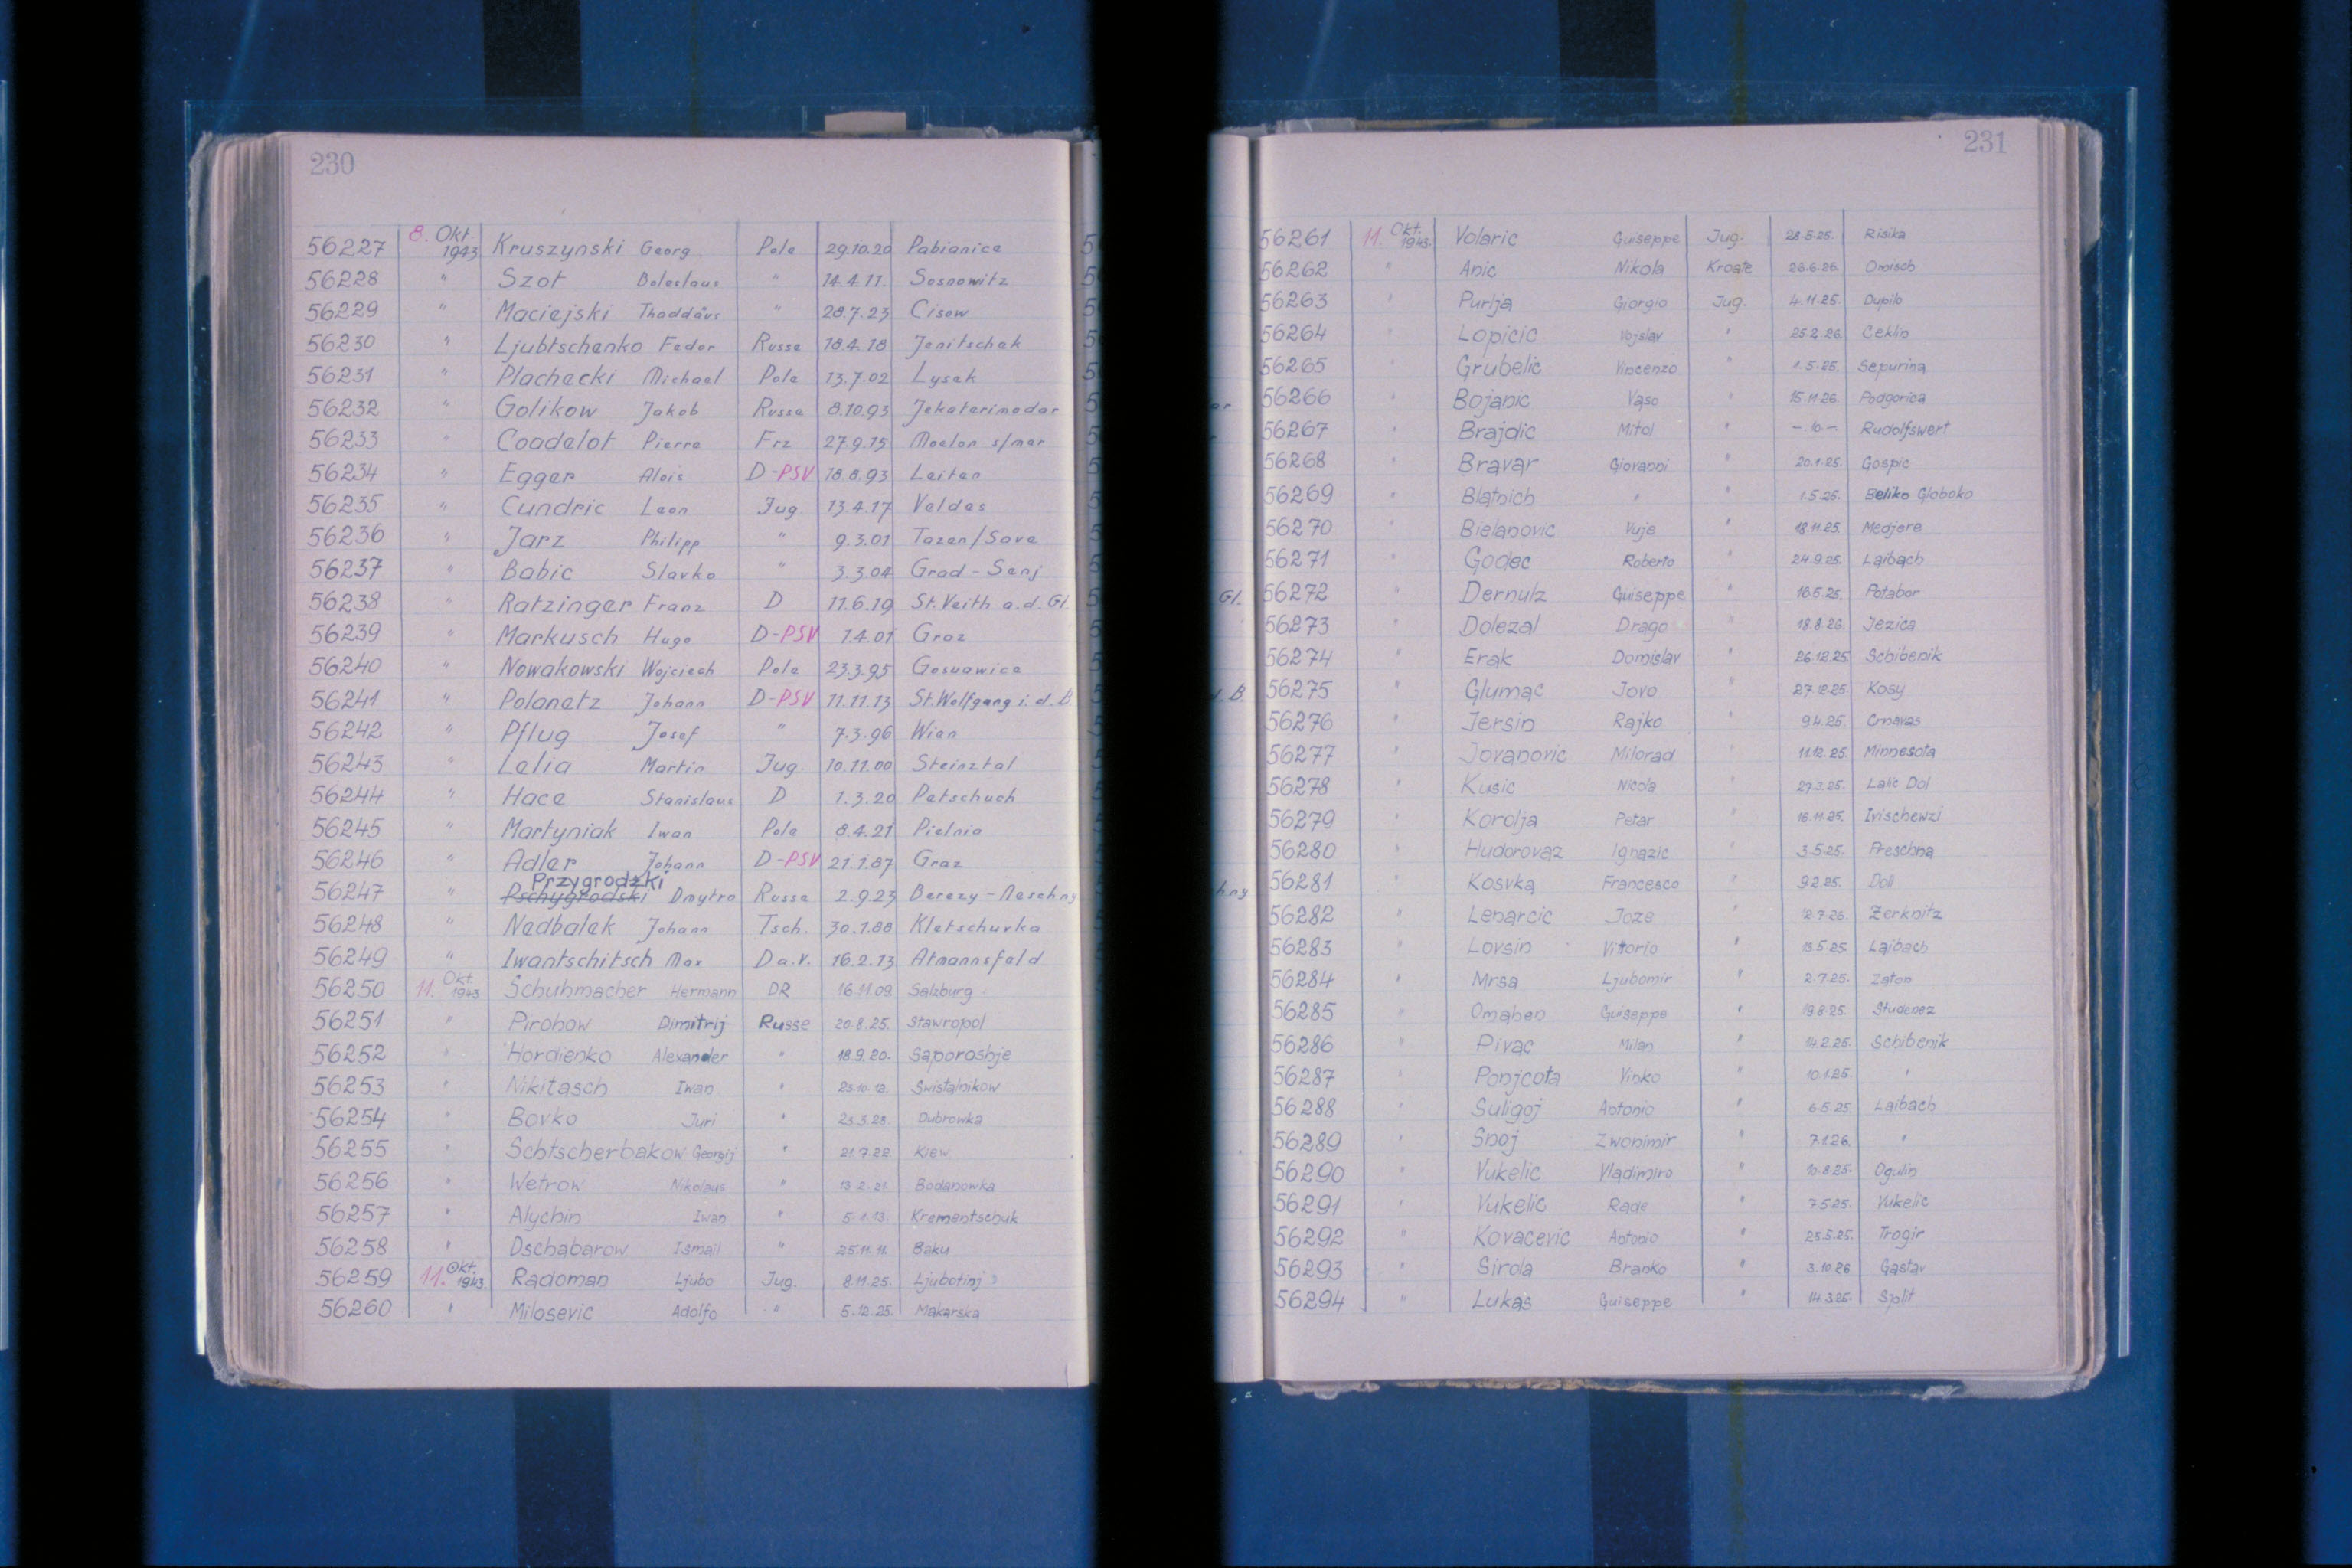 230
56227 8. Okt. 1943 Kruszynski Georg Pole 29.10.20 Pabianice
56228 " Szot Boleslaus " 14.4.11. Sosnowitz
56229 " Maciejski Thaddäus " 28.7.23 Cisow
56230 " Ljubtschenko Fedor Russe 18.4.18 Jenitschek
56231 " Plachecki Michael Pole 13.7.02 Lysek
56232 " Golikow Jakob Russe 8.10.93 Jekaterinodar
56233 " Coadelot Pierre Frz 27.9.15 Moelan s/mer
56234 " Egger Alois D-PSV 18.8.93 Leiten
56235 " Cundric Leon Jug. 13.4.17 Veldes
56236 " Jarz Philipp " 9.3.01 Tazen/Save
56237 " Babic Slavko " 3.3.04 Grad-Senj
56238 " Ratzinger Franz D 11.6.19 St.Veith a.d.Gl.
56239 " Markusch Hugo D-PSV 1.4.01 Graz
56240 " Nowakowski Wojciech Pole 23.3.95 Gosuawice
56241 " Polanetz Johann D-PSV 11.11.13 St.Wolfgang i.d.B.
56242 " Pflug Josef " 7.3.96 Wien
56243 " Lelia Martin Jug. 10.11.00 Steinztal
56244 " Hace Stanislaus D 1.3.20 Petschuch
56245 " Martyniak Iwan Pole 8.4.21 Pielnia
56246 " Adler Johann D-PSV 21.1.87 Graz
Przygrodzki
56247 " Pschygrodski Dmytro Russe 2.9.23 Berezy-Neschny
56248 " Nedbalek Johann Tsch. 30.1.88 Kletschuvka
56249 " Iwantschitsch Max Da.V. 16.2.13 Atmannsfeld
56250 11. Okt. 1943 Schuhmacher Hermann DR 16.11.09. Salzburg
56251 " Pirohow Dimitrij Russe 20.8.25. Stawropol
56252 " Hordienko Alexander " 18.9.20. Saporoshje
56253 " Nikitasch Iwan " 23.10.12. Swistalnikow
56254 " Bovko Juri " 23.3.23. Dubrowka
56255 " Schtscherbakow Georgij " 21.7.22. Kiew
56256 " Wetrow Nikolaus " 13.2.21. Bodanowka
56257 " Alychin Iwan " 5.1.13. Krementschuk
56258 " Dschabarow Ismail " 25.11.11. Baku
56259 11. Okt. 1943. Radoman Ljubo Jug. 8.11.25. Ljubotinj
56260 " Milosevic Adolfo " 5.12.25. Makarska
231
56261 11. Okt. 1943. Volaric Guiseppe Jug. 28.5.25. Risika
56262 " Anic Nikola Kroate 26.6.26. Omisch
56263 " Purlja Giorgio Jug. 4.11.25. Dupilo
56264 " Lopicic Vojslav " 25.2.26. Ceklin
56265 " Grubelic Vincenzo " 1.5.25. Sepurina
56266 " Bojanic Vaso " 15.11.26. Podgorica
56267 " Brajdic Mitol " -.10.- Rudolfswert
56268 " Bravar Giovanni " 20.1.25. Gospic
56269 " Blatnich " " 1.5.26. Beliko Globoko
56270 " Bielanovic Vuje " 18.11.25. Medjere
56271 " Godec Roberto " 24.9.25. Laibach
56272 " Dernulz Guiseppe " 16.5.25. Potabor
56273 " Dolezal Drago " 18.8.26. Jezica
56274 " Erak Domislav " 26.12.25. Schibenik
56275 " Glumac Jovo " 27.12.25. Kosy
56276 " Jersin Rajko " 9.4.25. Crnavas
56277 " Jovanovic Milorad " 11.12.25. Minnesota
56278 " Kusic Nicola " 27.3.25. Lalic Dol
56279 " Korolja Petar " 16.11.25. Ivischewzi
56280 " Hudorovaz Ignazic " 3.5.25. Preschna
56281 " Kosvka Francesco " 9.2.25. Doll
56282 " Lenarcic Joze " 12.7.26. Zerknitz
56283 " Lovsin Vitorio " 13.5.25. Laibach
56284 " Mrsa Ljubomir " 2.7.25. Zaton
56285 " Omahen Guiseppe " 19.8.25. Studenez
56286 " Pivac Milan " 14.2.25. Schibenik
56287 " Ponjcota Vinko " 10.1.25. "
56288 " Suligoj Antonio " 6.5.25. Laibach
56289 " Snoj Zwonimir " 7.1.26. "
56290 " Vukelic Vladimiro " 10.8.25. Ogulin
56291 " Vukelic Rade " 7.5.25. Vukelic
56292 " Kovacevic Antonio " 25.5.25. Trogir
56293 " Sirola Branko " 3.10.26 Gastav
56294 " Lukas Guiseppe " 14.3.25. Split